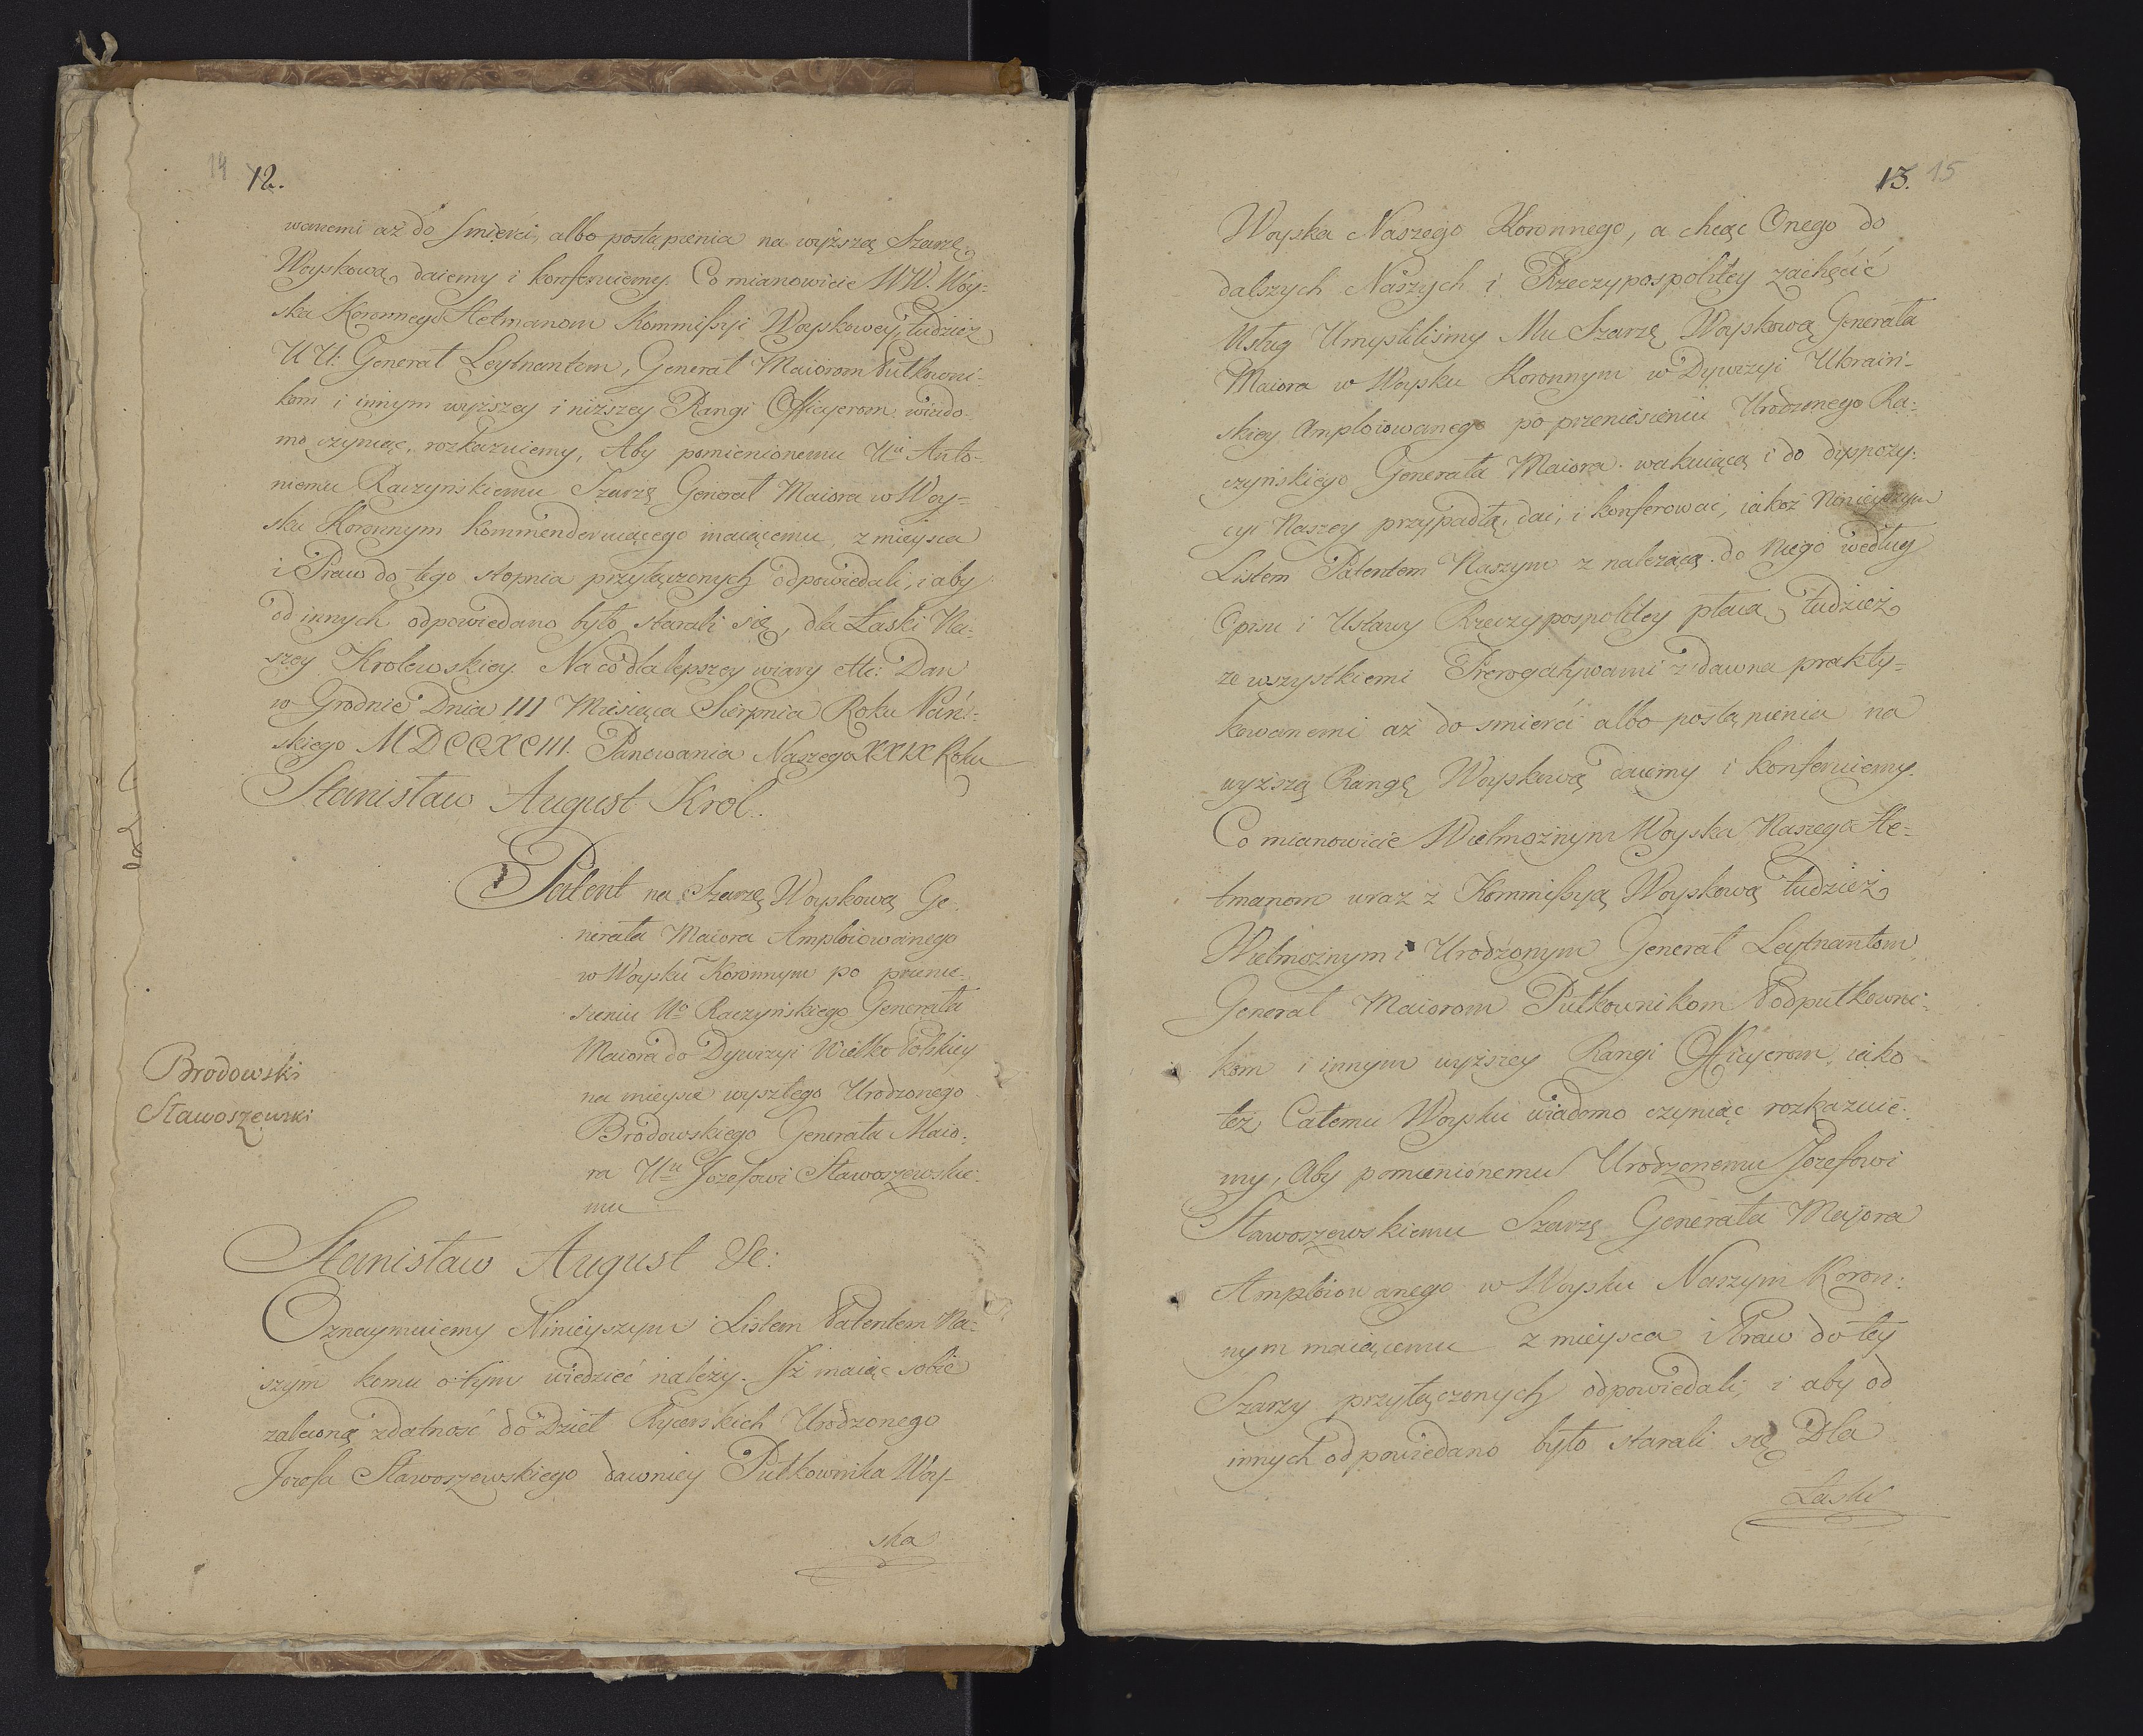 14 12.
wanemi aż do smierci, albo postąpienia na wyższą Szarzę
Woyskową daiemy i konferuiemy. Co mianowicie WW. Woy-
ska Koronnego Hetmanom Kommissyi Woyskowey, tudzież
UU. Generał Leytnantom, Generał Maiorom Pułkowni-
kom i innym wyższey i niższey Rangi Officyerom wiado-
mo czyniąc, rozkazuiemy, Aby pomienionemu Uu Anto-
niemu Raczyńskiemu Szarżę Generał Maiora w Woy-
sku Koronnym kommenderuiącego maiącemu, z mieysca
i Praw do tego stopnia przyłączonych odpowiedali, i aby
od innych odpowiedano było starali się, dla Łaski Na-
szey Krolewskiey. Na co dla lepszey wiary ettc: Dan
w Grodnie Dnia III Miesiąca Sierpnia Roku Pań-
skiego MDCCXCIII. Panowania Naszego XXIX Roku
Stanisław August Krol.
Patent na Szarżę Woyskową Ge-
nerała Maiora Amploiowanego
w Woysku Koronnym po przenie-
sieniu Uo Raczyńskiego Generała
Maiora do Dywizyi Wielko Polskiey
na mieysce wyszłego Urodzonego
Brodowskiego Generała Maio-
ra Uu Jozefowi Stawoszewskie-
mu
Brodowski
Stawoszewski
Stanisław August &c:
Oznaymuiemy Ninieyszym Listem Patentem Na-
szym komu o tym wiedzieć należy. Iż maiąc sobie
zaleconą zdatność do Dzieł Rycerskich Urodzonego
Jozefa Stawoszewskiego dawniey Pułkownika Woy-
ska
13. 15
Woyska Naszego Koronnego, a chcąc Onego do
dalszych Naszych i Rzeczypospolitey zachęcić
Usług Umyśliliśmy Mu Szarżę Woyskową Generała
Maiora w Woysku Koronnym w Dywizyi Ukrain-
skiey Amploiowanego po przeniesieniu Urodzonego Ra-
czyńskiego Generała Maiora wakuiącą i do dyspozy-
cyi Naszey przypadłą, dać, i konferować, iakoż Ninieyszym
Listem Patentem Naszym z należącą do niego według
Opisu i Ustawy Rzeczypospolitey płacą, tudzież
ze wszystkiemi Prerogatywami z dawna prakty-
kowanemi aż do smierci albo postąpienia na
wyższą Rangę Woyskową daiemy i konferuiemy.
Co mianowicie Wielmożnym Woyska Naszego He-
tmanom wraz z Kommissyią Woyskową tudzież
Wielmożnym i Urodzonym Generał Leytnantom,
Generał Maiorom Pułkownikom Podpułkowni-
kom i innym wyższey Rangi Officyerom, iako
też Całemu Woysku wiadomo czyniąc rozkazuie-
my, Aby pomienionemu Urodzonemu Jozefowi
Stawoszewskiemu Szarżę Generała Majora
Amploiowanego w Woysku Naszym Koron-
nym maiącemu z mieysca i Praw do tey
Szarzy przyłączonych odpowiedali, i aby od
innych odpowiedano było starali się Dla
Łaski